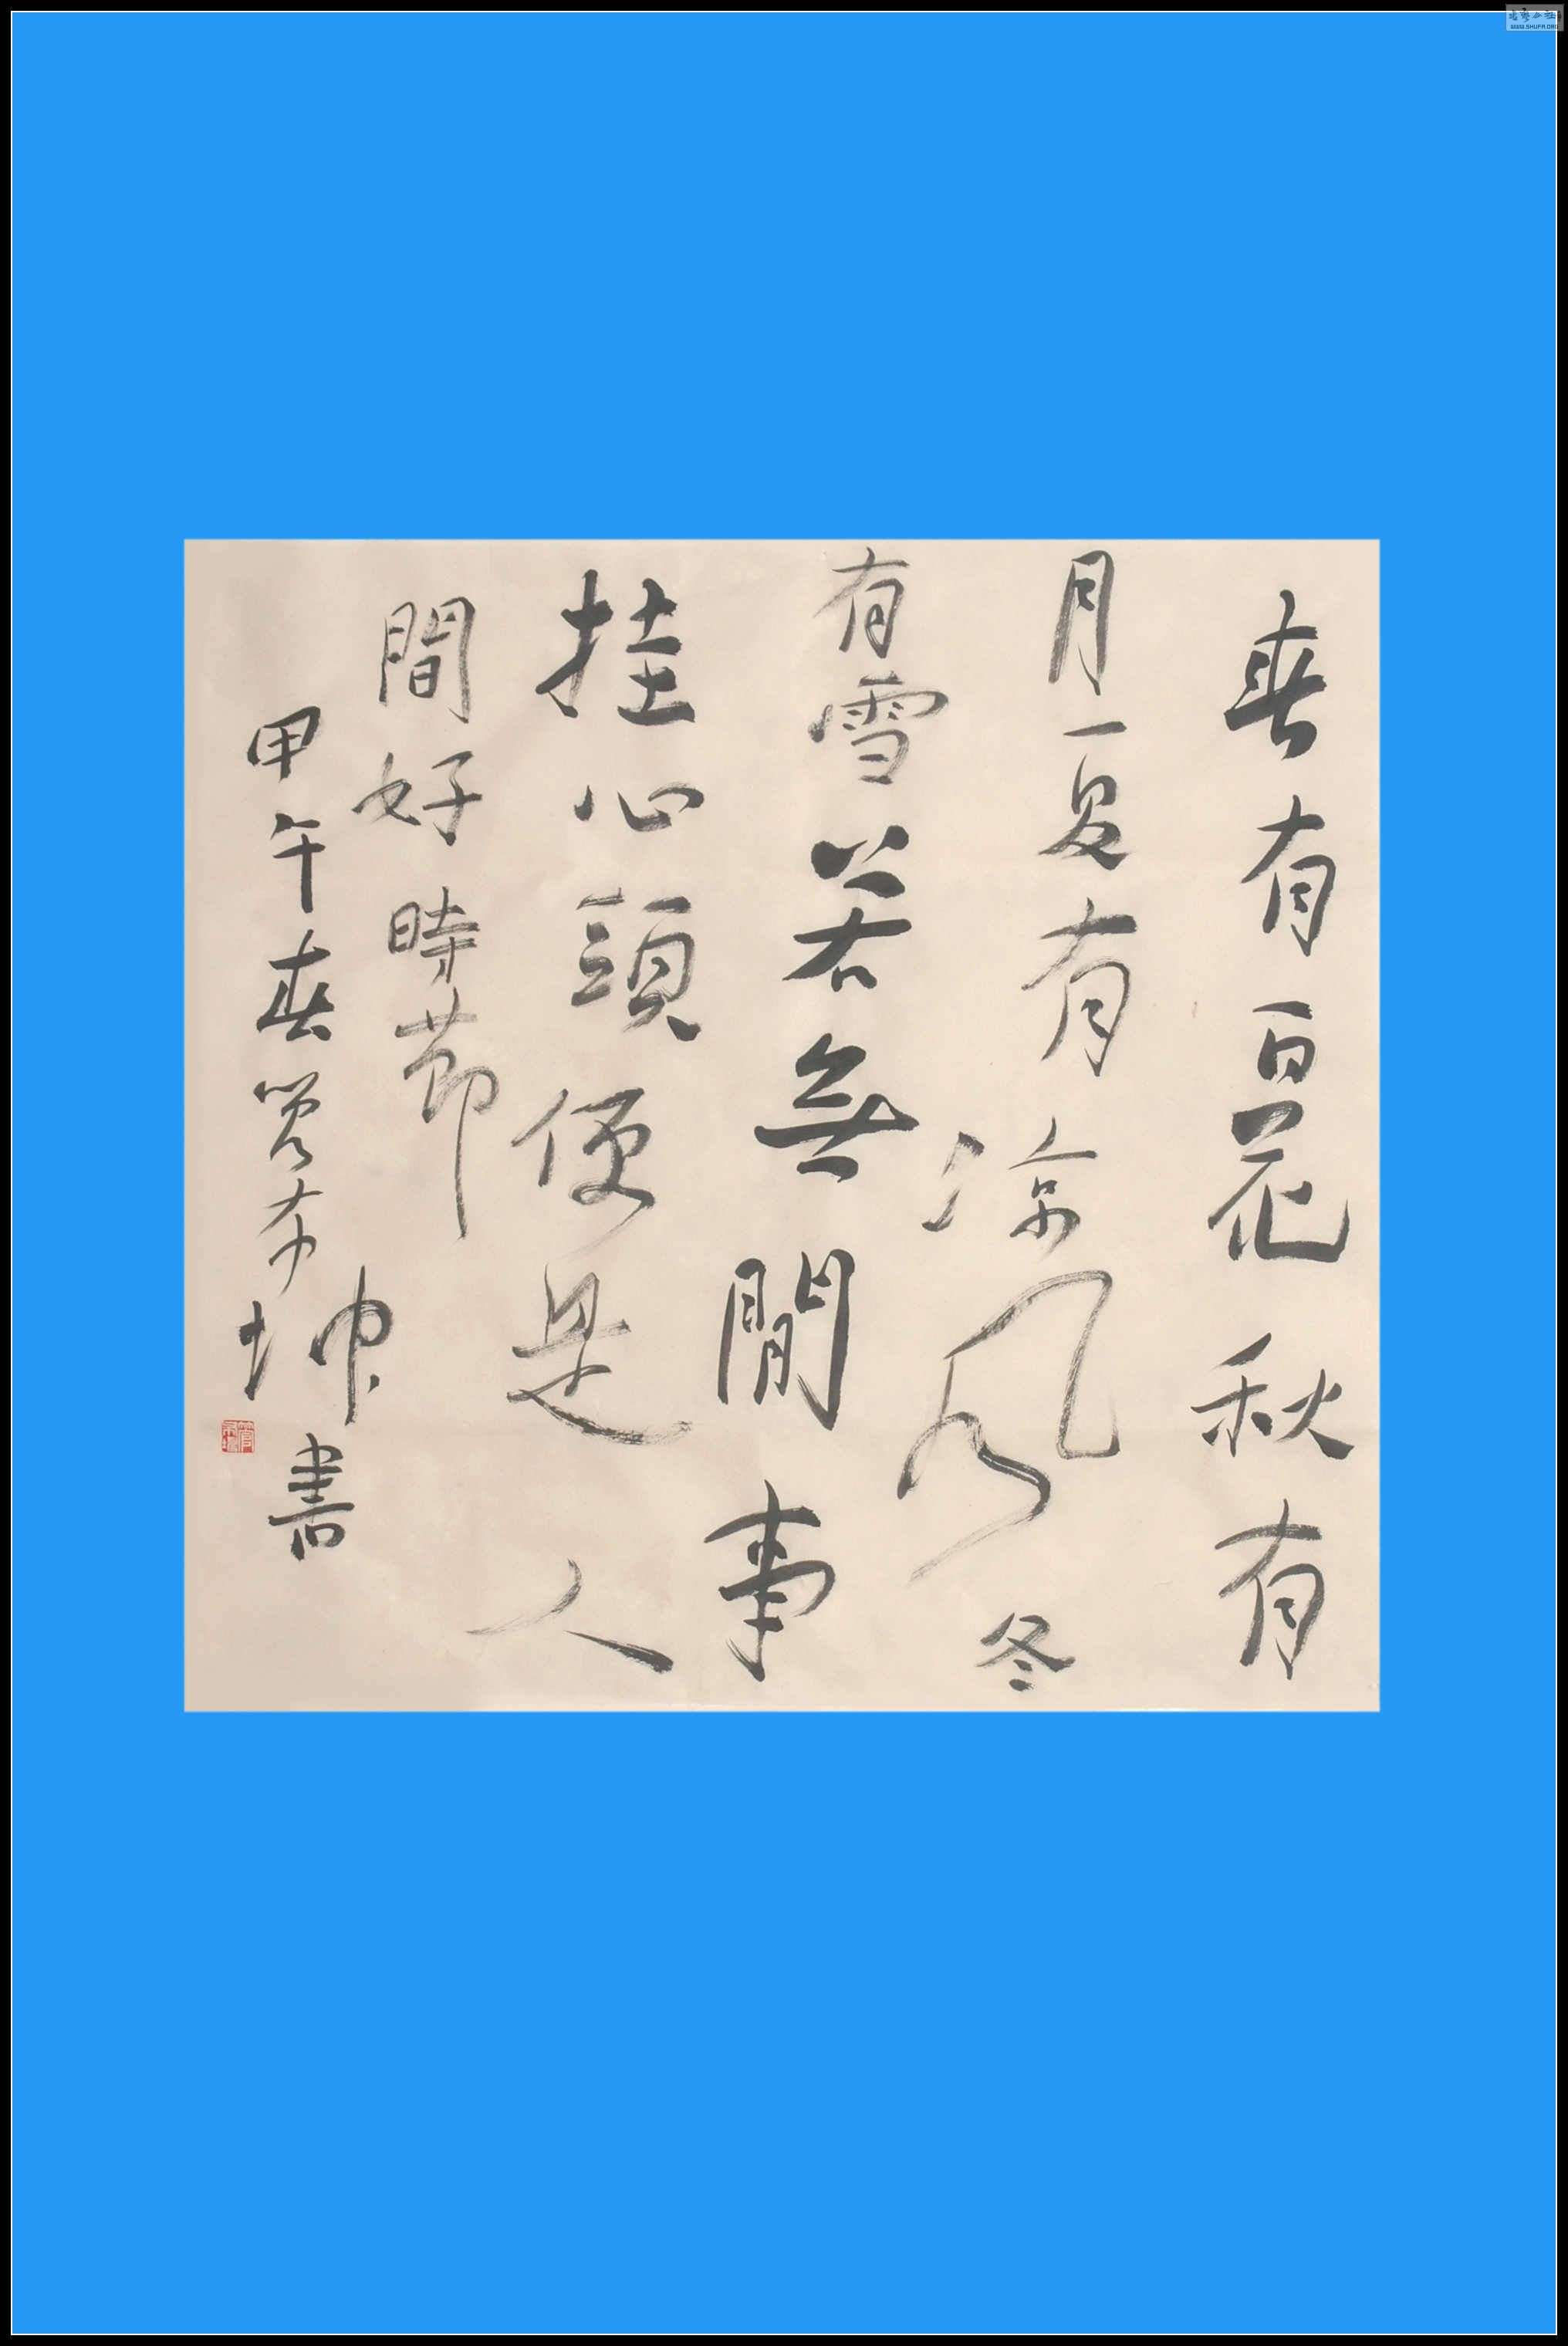 春有百花秋有
月夏有涼风冬
有雪若無閒事
挂心頭便是人
間好時節
甲午春管布坤書
WWW.SHUFA.ORG